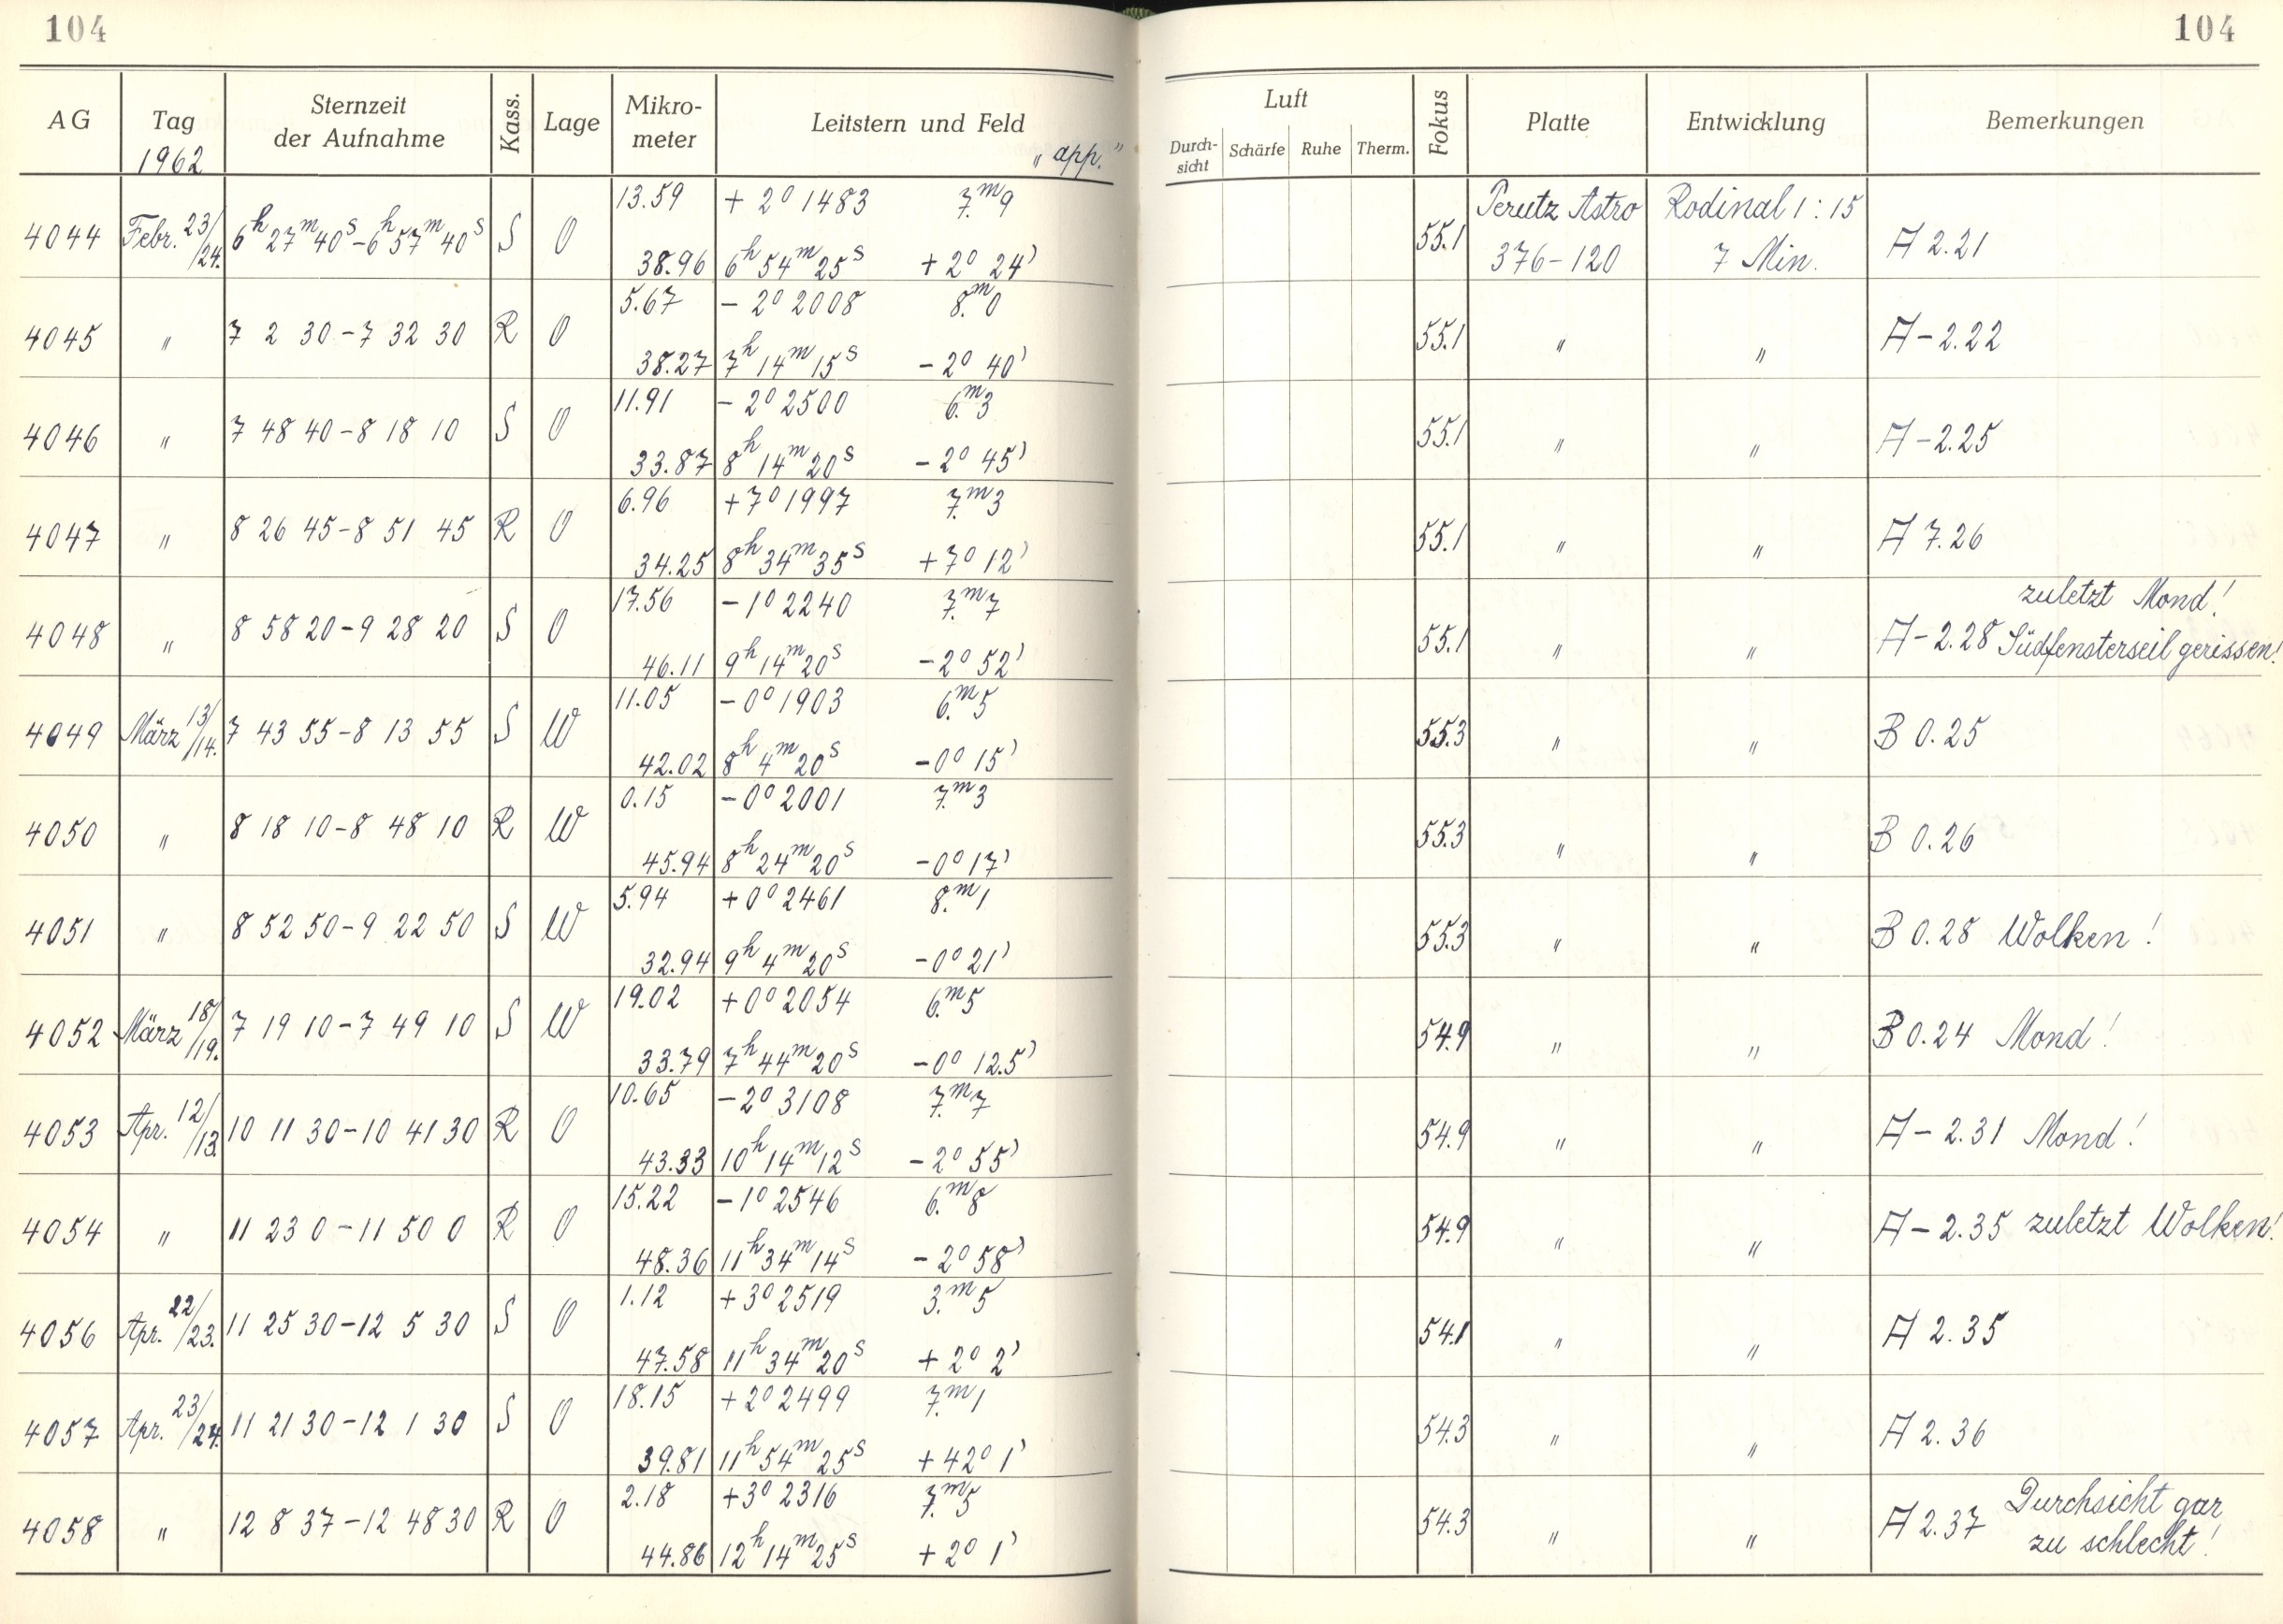 104 104
AG Tag 1962 Sternzeit der Aufnahme Kass. Lage Mikro-meter Leitstern und Feld „app.“ Luft Durch-sicht Schärfe Ruhe Therm. Fokus Platte Entwicklung Bemerkungen
13.59 + 2° 1483 7.m9 Perutz Astro Rodinal 1:15
4044 Febr. 23/24. 6h 27m 40s - 6h 57m 40s S O 55.1 A 2.21
38.96 6h 54m 25s + 2° 24' 376-120 7 Min.
5.67 - 2° 2008 8.m0
4045 " 7 2 30 - 7 32 30 R O 55.1 " " A - 2.22
38.27 7h 14m 15s - 2° 40'
11.91 - 2° 2500 6.m3
4046 " 7 48 40 - 8 18 10 S O 55.1 " " A - 2.25
33.87 8h 14m 20s - 2° 45'
6.96 + 7° 1997 7.m3
4047 " 8 26 45 - 8 51 45 R O 55.1 " " A 7.26
34.25 8h 34m 35s + 7° 12'
17.56 - 1° 2240 7.m7 zuletzt Mond!
4048 " 8 58 20 - 9 28 20 S O 55.1 " " A - 2.28 Südfensterseil gerissen!
46.11 9h 14m 20s - 2° 52'
11.05 - 0° 1903 6.m5
4049 März 13/14. 7 43 55 - 8 13 55 S W 55.3 " " B 0.25
42.02 8h 4m 20s - 0° 15'
0.15 - 0° 2001 7.m3
4050 " 8 18 10 - 8 48 10 R W 55.3 " " B 0.26
45.94 8h 24m 20s - 0° 17'
5.94 + 0° 2461 8.m1
4051 " 8 52 50 - 9 22 50 S W 55.3 " " B 0.28 Wolken!
32.94 9h 4m 20s - 0° 21'
19.02 + 0° 2054 6.m5
4052 März 18/19. 7 19 10 - 7 49 10 S W 54.9 " " B 0.24 Mond!
33.79 7h 44m 20s - 0° 12.5'
10.65 - 2° 3108 7.m7
4053 Apr. 12/13. 10 11 30 - 10 41 30 R O 54.9 " " A - 2.31 Mond!
43.33 10h 14m 12s - 2° 55'
15.22 - 1° 2546 6.m8
4054 " 11 23 0 - 11 50 0 R O 54.9 " " A - 2.35 zuletzt Wolken!
48.36 11h 34m 14s - 2° 58'
1.12 + 3° 2519 3.m5
4056 Apr. 22/23. 11 25 30 - 12 5 30 S O 54.1 " " A 2.35
47.58 11h 34m 20s + 2° 2'
18.15 + 2° 2499 7.m1
4057 Apr. 23/24. 11 21 30 - 12 1 30 S O 54.3 " " A 2.36
39.81 11h 54m 25s + 42° 1'
2.18 + 3° 2316 7.m5 Durchsicht gar
4058 " 12 8 37 - 12 48 30 R O 54.3 " " A 2.37 zu schlecht!
44.86 12h 14m 25s + 2° 1'